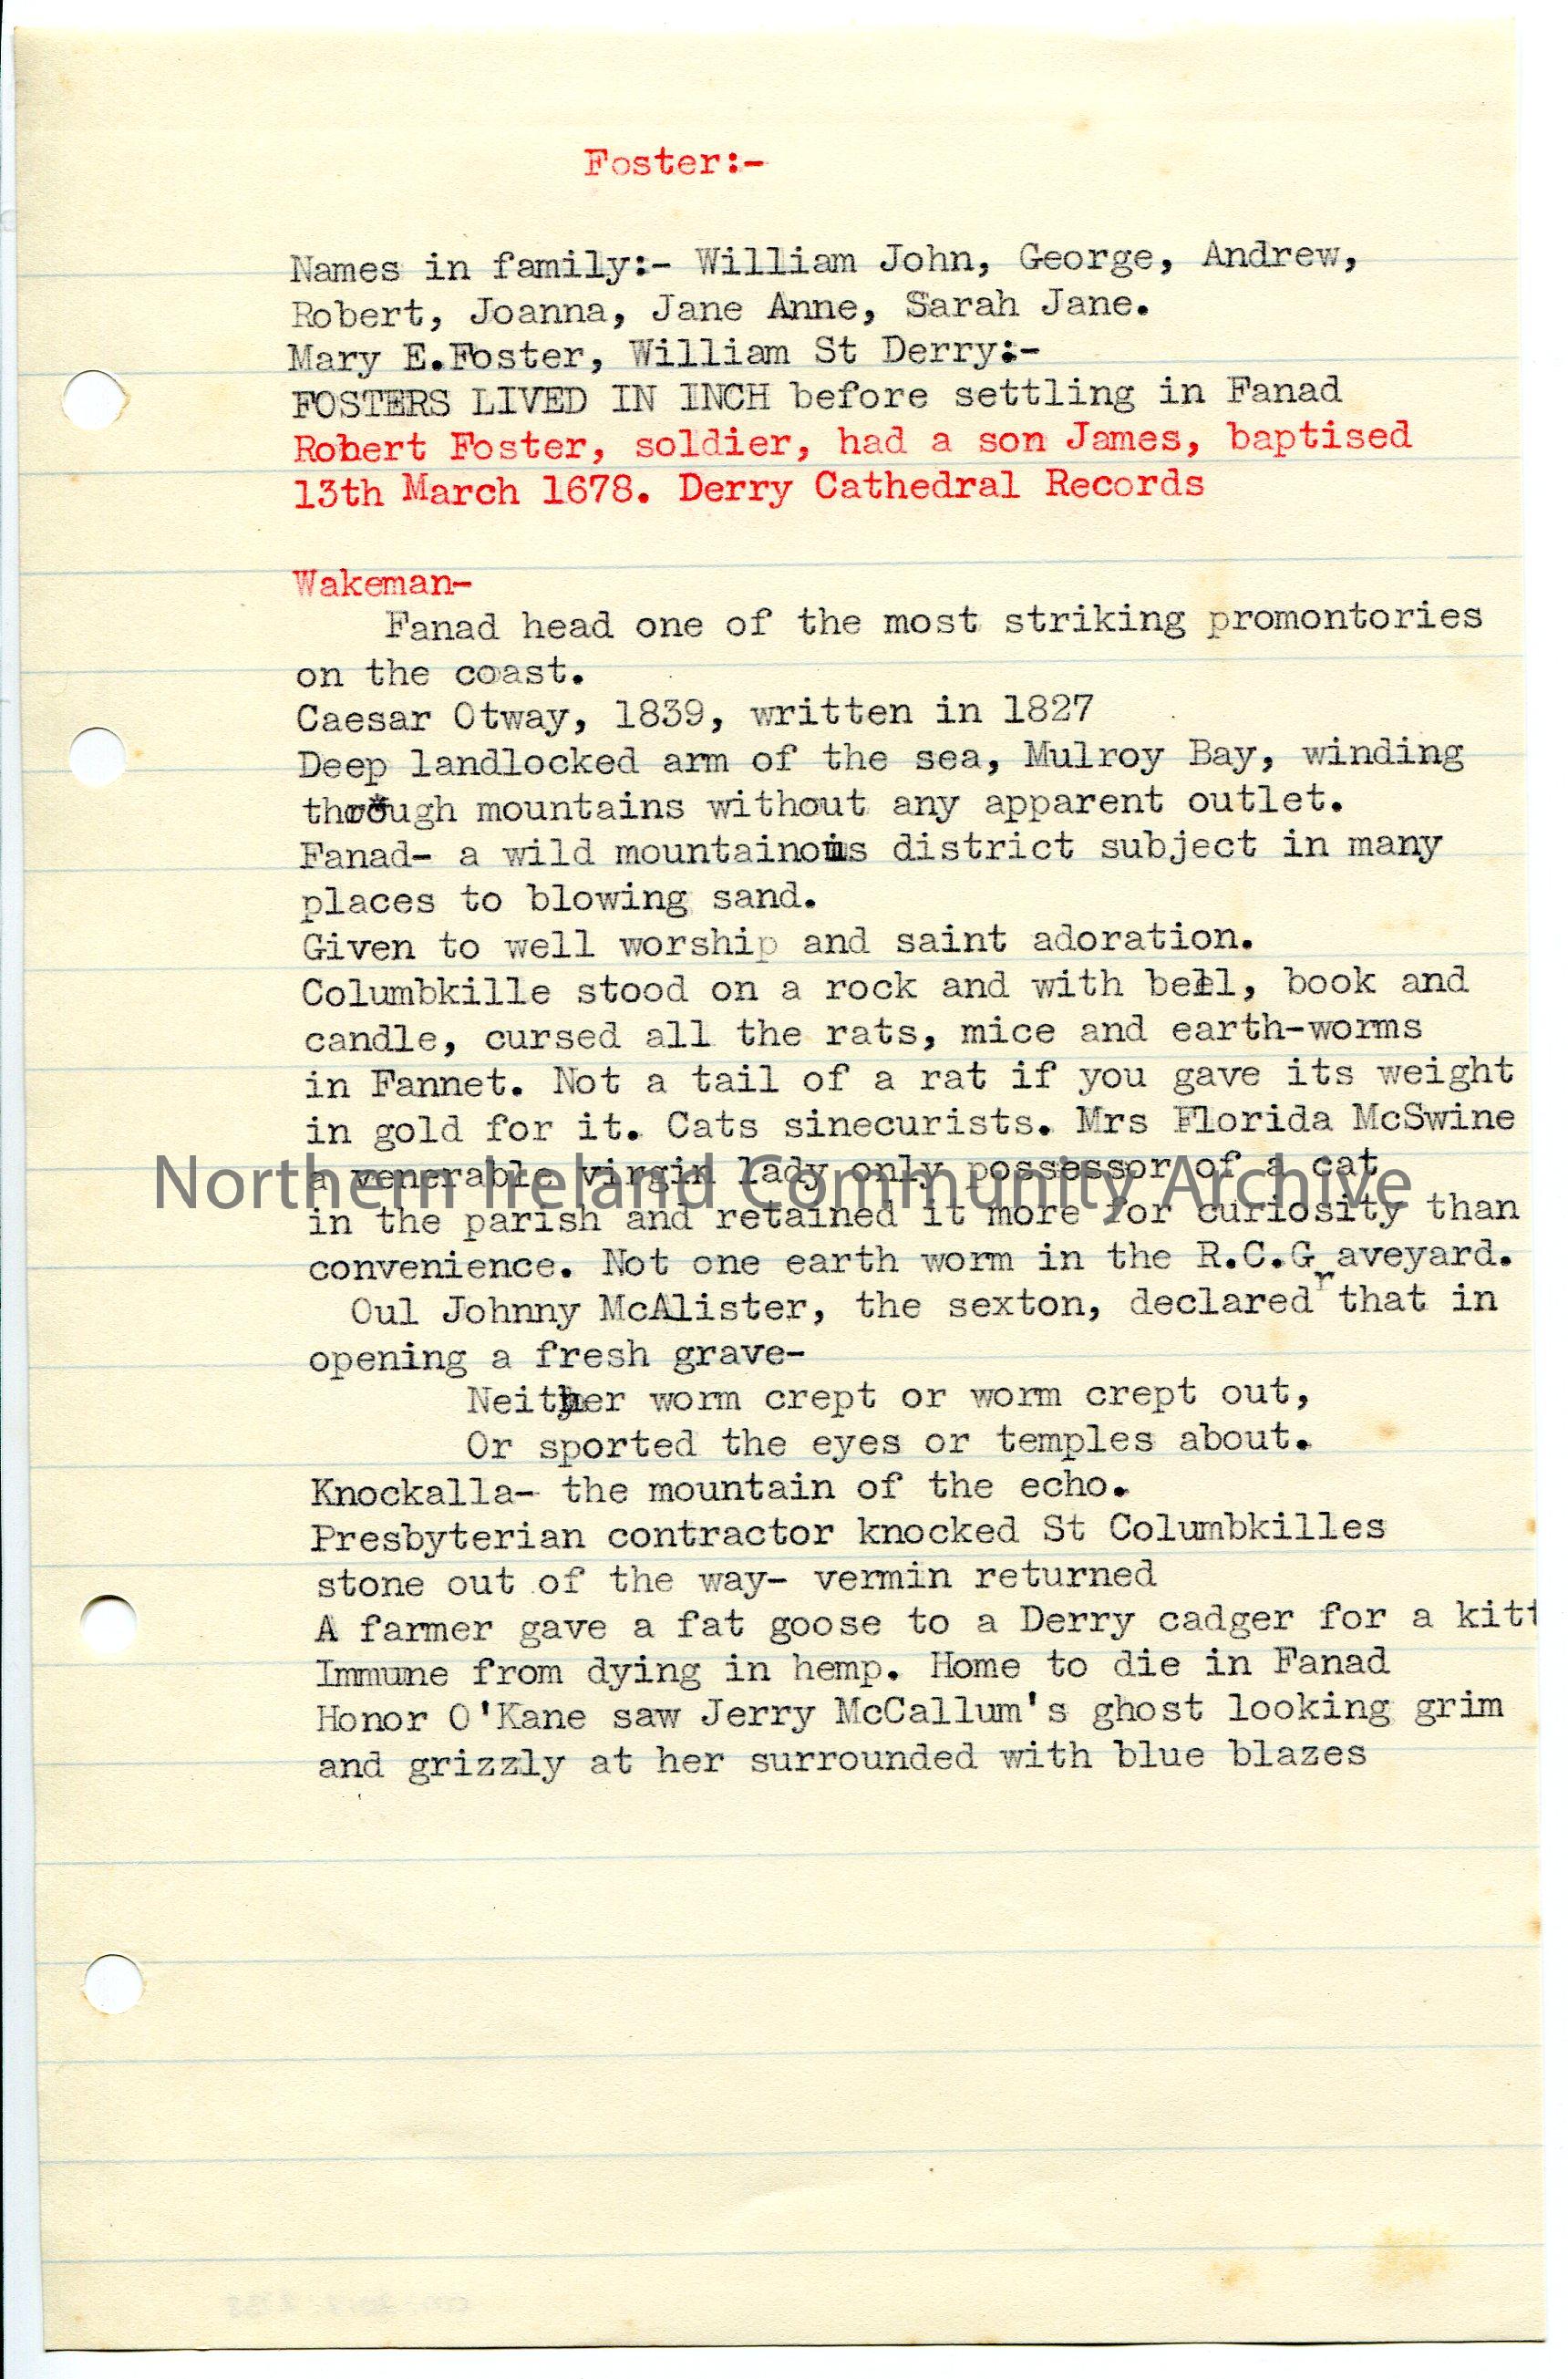 Foster:-
Names in family:- William John, George, Andrew,
Robert, Joanna, Jane Anne, Sarah Jane.
Mary E.Foster, William St Derry:-
FOSTERS LIVED IN INCH before settling in Fanad
Robert Foster, soldier, had a son James, baptised
13th March 1678. Derry Cathedral Records
Wakeman-
Fanad head one of the most striking promontories
on the coast.
Caesar Otway, 1839, written in 1827
Deep landlocked arm of the sea, Mulroy Bay, winding
through mountains without any apparent outlet.
Fanad- a wild mountainous district subject in many
places to blowing sand.
Given to well worship and saint adoration.
Columbkille stood on a rock and with bell, book and
candle, cursed all the rats, mice and earth-worms
in Fannet. Not a tail of a rat if you gave its weight
in gold for it. Cats sinecurists. Mrs Florida McSwine
a venerable virgin lady only possessor of a cat
Northern Ireland Community Archive
in the parish and retained it more for curiosity than
convenience. Not one earth worm in the R.C.Graveyard.
Oul Johnny McAlister, the sexton, declared that in
opening a fresh grave-
Neither worm crept or worm crept out,
Or sported the eyes or temples about.
Knockalla- the mountain of the echo.
Presbyterian contractor knocked St Columbkilles
stone out of the way- vermin returned
A farmer gave a fat goose to a Derry cadger for a kitt
Immune from dying in hemp. Home to die in Fanad
Honor O'Kane saw Jerry McCallum's ghost looking grim
and grizzly at her surrounded with blue blazes